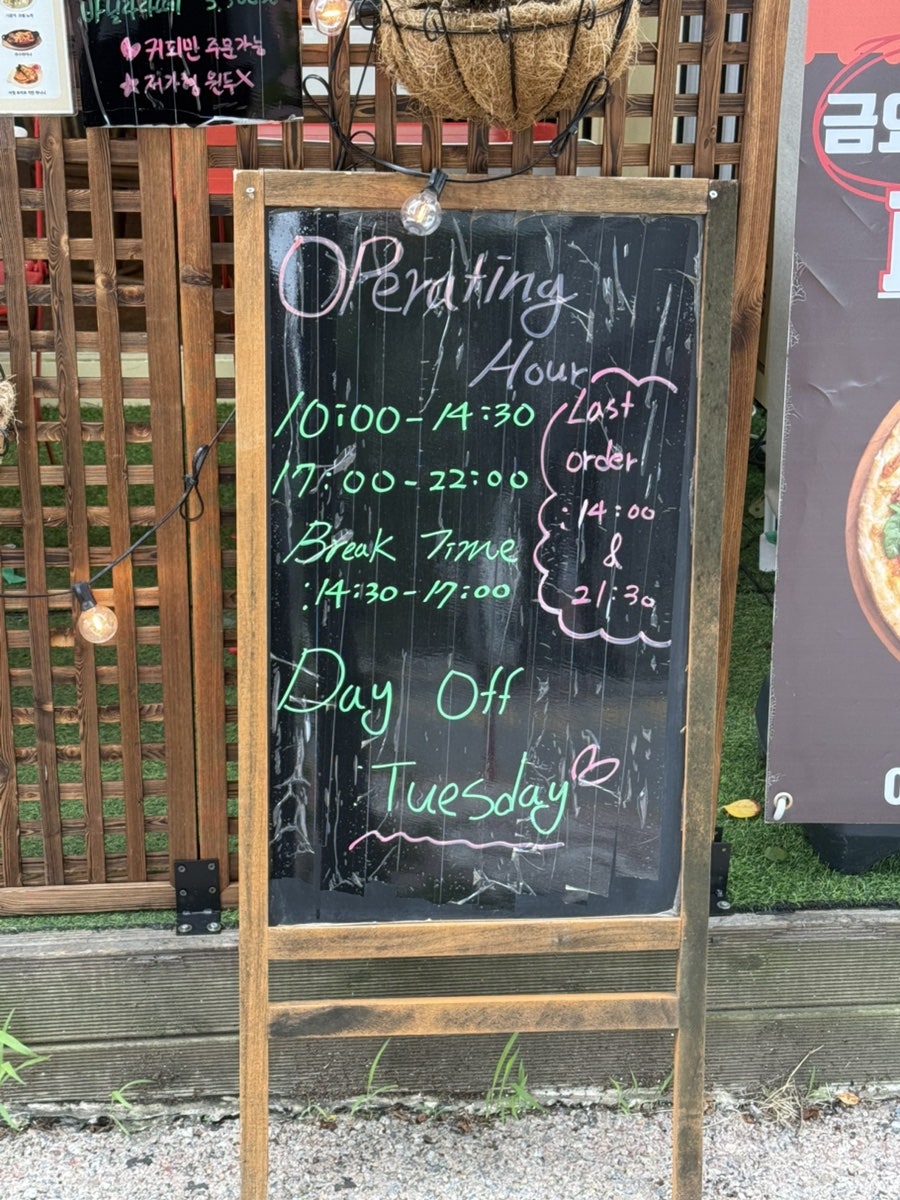 커피만 주문가능
저가형 원두X
Operating
Hour
10:00-14:30
17:00-22:00
Break Time
:14:30-17:00
Last
order
:14:00
&
21:30
Day Off
Tuesday